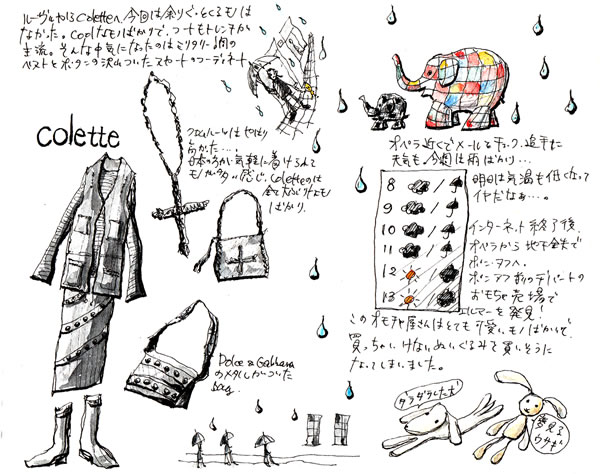 ルーヴルからColetteへ、今回は余りぐっとくるモノは
なかった。Coolなモノばかりで、コートもトレンチが
主流。そんな中気になったのはミリタリー調の
ベストとボタンの沢山ついたスカートのコーディネート。
colette
クロムハーツはやはり
高かった…!
日本の方が気軽に着けられて
モノが多い感じ。Coletteのは
全て大ぶりなモノ
ばかり。
Dolce & Gabbana
のメタルがついた
bag
オペラ近くでメールをチェック、追手に
天気も今週は雨ばかり…
8 /
9 /
10 /
11 /
12 /
13 /
明日は気温も低くなって
イヤだなぁ…。
インターネット終了後、
オペラから地下鉄で
ボン・マルシェへ。
ボンマルシェのデパートの
おもちゃ売場で
エルマーを発見!
このオモチャ屋さんはとても可愛いモノばかりで、
買っちゃいけないぬいぐるみまで買いそうに
なってしまいました。
ダラダラした犬
夢見る
ウサギ